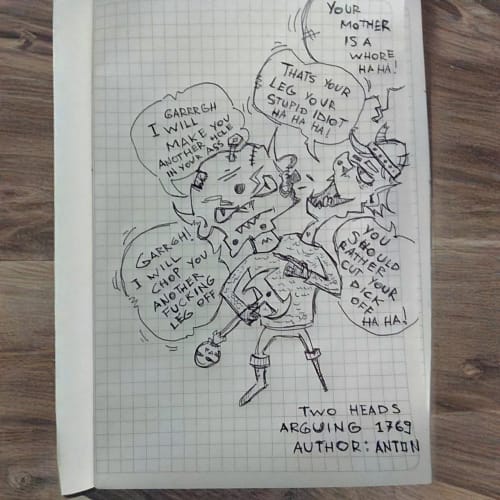 YOUR
MOTHER
IS A
WHORE
HA HA!
THATS YOUR
LEG YOUR
STUPID IDIOT
HA HA HA!
GARRRGH
I WILL
MAKE YOU
ANOTHER HOLE
IN YOUR ASS
GARRGH!
I WILL
CHOP YOU
ANOTHER
FUCKING
LEG OFF
YOU
SHOULD
RATHER
CUT YOUR
DICK
OFF
HA HA!
TWO HEADS
ARGUING 1769
AUTHOR: ANTON